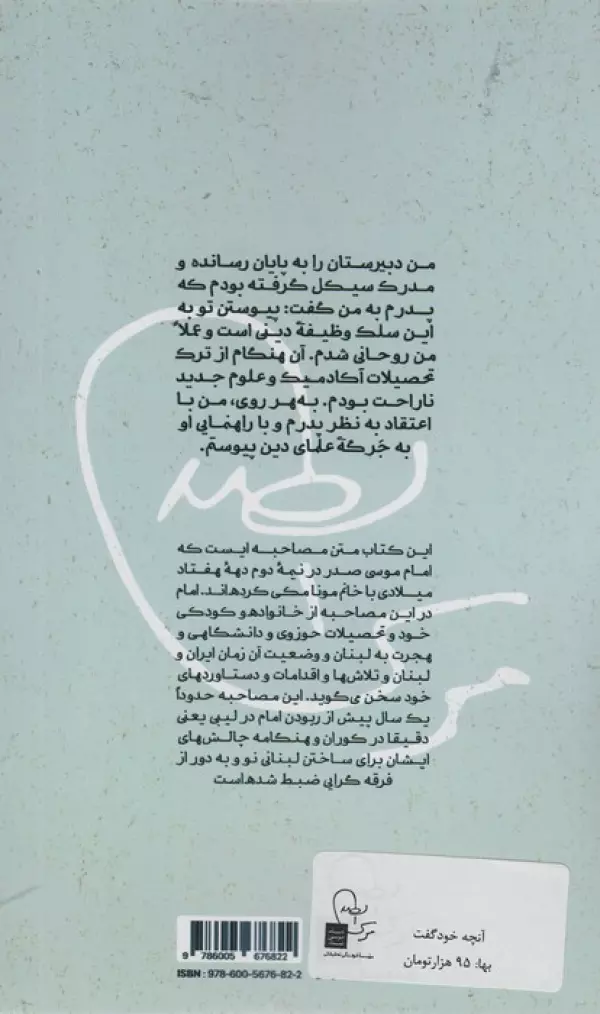 من دبیرستان را به پایان رسانده و
مدرک سیکل گرفته بودم که
پدرم به من گفت: پیوستن تو به
این سلک وظیفهٔ دینی است و عملاً
من روحانی شدم. آن هنگام از ترک
تحصیلات آکادمیک و علوم جدید
ناراحت بودم. به‌هر روی، من با
اعتقاد به نظر پدرم و با راهنمایی او
به جَرگهٔ علمای دین پیوستم.
این کتاب متن مصاحبه ایست که
امام موسی صدر در نیمهٔ دوم دههٔ هفتاد
میلادی با خانم مونا مکی کرده‌اند. امام
در این مصاحبه از خانواده‌و کودکی
خود و تحصیلات حوزوی و دانشگاهی و
هجرت به لبنان و وضعیت آن زمان ایران و
لبنان و تلاش‌ها و اقدامات و دستاوردهای
خود سخن می‌گوید. این مصاحبه حدوداً
یک سال پیش از ربودن امام در لیبی یعنی
دقیقا در کوران و هنگامه چالش‌های
ایشان برای ساختن لبنانی نو و به دور از
فرقه گرایی ضبط شده‌است
آنچه خود گفت
بها: ۹۵ هزارتومان
9 786005 676822
ISBN : 978-600-5676-82-2